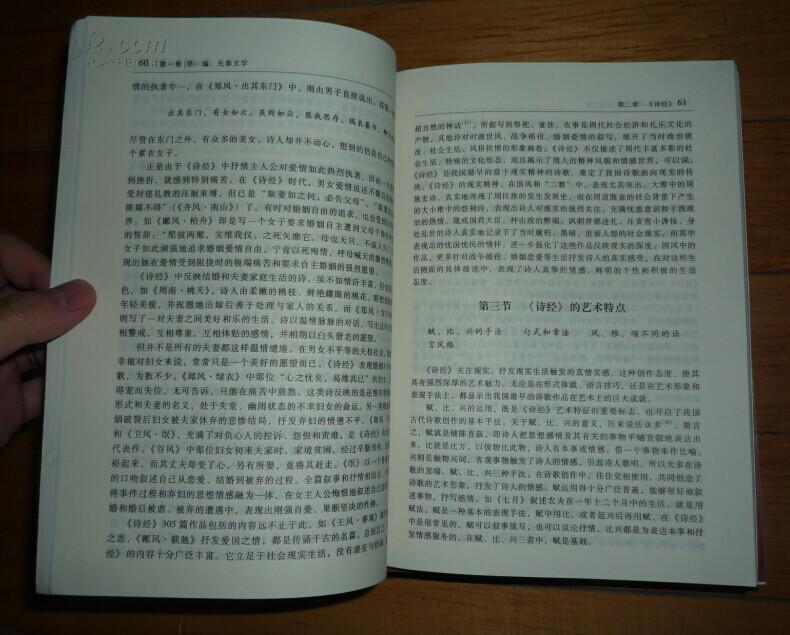 60 第一卷 第一编 先秦文学
情的执著专一,在《郑风·出其东门》中,则由男子直接说出,其
出其东门,有女如云。虽则如云,匪我思存。缟衣綦巾,
尽管在东门之外,有众多的美女,诗人却并不动心,想到的仍是自己
个素衣女子。
正是由于《诗经》中抒情主人公对爱情如此热烈执著,因而一旦
到挫折,就感到特别痛苦。在《诗经》时代,男女爱情虽还不像后世
受封建礼教的压制束缚,但已是“取妻如之何,必告父母”、“取妻如
匪媒不得”(《齐风·南山》)了。有时对婚姻自由的追求,也会受到
涉。如《鄘风·柏舟》即是写一个女子要求婚姻自主遭到父母干
的誓辞:“髧彼两髦,实维我仪。之死矢靡它。母也天只,不谅人只
女子如此顽强地追求婚姻爱情自由,宁肯以死殉情,呼母喊天的激烈情
现出她在爱情受到阻挠时的极端痛苦和要求自主婚姻的强烈愿望。
《诗经》中反映结婚和夫妻家庭生活的诗,虽不如情诗丰富,
色,如《周南·桃夭》,诗人由柔嫩的桃枝、鲜艳耀眼的桃花,联想到
年轻美貌,并祝愿她出嫁后善于处理与家人的关系。而《郑风·女曰
则写了一对夫妻之间美好和乐的生活。诗以温情脉脉的对话,写出
相警戒,互相尊重,互相体贴的感情,并相期以白头偕老的愿望。
但并不是所有的夫妻都这样温情缱绻。在男女不平等的夫权社会,
幸福对妇女来说,常常只是一个美好的愿望而已。《诗经》表现婚姻不
歌,为数不少。《邶风·绿衣》中那位“心之忧矣,曷维其已”的妇女,
得宠而失位,无可告诉,只能在痛苦中煎熬。这类诗反映的是迫维持
形式和夫妻的名义,处于失宠、幽闭状态的不幸妇女的命运。另一类
姻破裂后妇女被夫家休弃的悲惨结局,抒发弃妇的愤懑不平。《邶风·
和《卫风·氓》,充满了对负心人的控诉、怨恨和责难,是《诗经》弃妇
代表作。《谷风》中那位妇女初来夫家时,家境贫困,经过辛勤劳作,
裕起来,而其丈夫却变了心,另有所娶,竟将其赶走。《氓》以一个
的口吻叙述自己从恋爱、结婚到被弃的过程。全篇叙事和抒情相结合,
将事件过程和弃妇的思想情感融为一体,在女主人公悔恨地叙述自己
婚和婚后被虐、被弃的遭遇中,表现出刚强自爱、果断坚决的性格。
《诗经》305篇作品包括的内容远不止于此。如《王风·黍离》
之思,《鄘风·载驰》抒发爱国之情,都是传诵千古的名篇。总而言之,
经》的内容十分广泛丰富。它立足于社会现实生活,没有虚妄与
第二章 《诗经》 61
超自然的神话,所叙写的祭祀、宴饮、农事是周代社会经济和礼乐文化的
产物,其他诗对时政世风、战争徭役、婚姻爱情的叙写,展开了当时政治状
况、社会生活、风俗民情的形象画卷。《诗经》不仅描述了周代丰富多彩的社
会生活、特殊的文化形态,而且揭示了周人的精神风貌和情感世界。可以说,
《诗经》是我国最早的富于现实精神的诗歌,奠定了我国诗歌面向现实的传
统。《诗经》的现实精神,在国风和“二雅”中,表现尤其突出。大雅中的周
族史诗,真实地再现了周民族的发生发展史。而在周道既衰的社会背景下产生
的大小雅中的怨刺诗,表现出诗人对现实的强烈关注,充满忧患意识和干预政
治的热情。箴戒国君大臣,抨击政治弊端,讽刺背都违礼,斥责宵小谗佞,身
处乱世的诗人真实地记录下了当时腐朽、黑暗、世衰人怨的社会现实,而其中
表现出的忧国忧民的情怀,进一步强化了这些作品反映现实的深度。国风中的
作品,更多针对战争徭役、婚姻恋爱等生活抒发诗人的真实感受,在对这些生
活侧面的具体描述中,表现了诗人真挚的情感,鲜明的个性和积极的生活
态度。
第三节 《诗经》的艺术特点
赋、比、兴的手法 句式和章法 风、雅、颂不同的语
言风格
《诗经》关注现实,抒发现实生活触发的真情实感,这种创作态度,使其
具有强烈深厚的艺术魅力。无论是在形式体裁、语言技巧,还是在艺术形象和
表现手法上,都显示出我国最早的诗歌作品在艺术上的巨大成就。
赋、比、兴的运用,既是《诗经》艺术特征的重要标志,也开启了我国
古代诗歌创作的基本手法。关于赋、比、兴的意义,历来说法众多,简言
之,赋就是铺陈直叙,即诗人把思想感情及其有关的事物平铺直叙地表达出
来。比就是比方,以彼物比此物,诗人有本事或情感,借一个事物来作比喻。
兴则是触物兴词,客观事物触发了诗人的情感,引起诗人歌唱,所以大多在诗
歌的发端。赋、比、兴三种手法,在诗歌创作中,往往交相使用,共同创造了
诗歌的艺术形象,抒发了诗人的情感。赋运用得十分广泛普遍,能够很好地叙
述事物,抒写感情。如《七月》叙述农夫在一年十二个月中的生活,就是用
赋法。赋是一种基本的表现手法,赋中用比,或者起兴后再用赋,在《诗经》
中是很常见的。赋可以叙事描写,也可以议论抒情,比兴都是为表达本事和抒
发情感服务的,在赋、比、兴三者中,赋是基础。